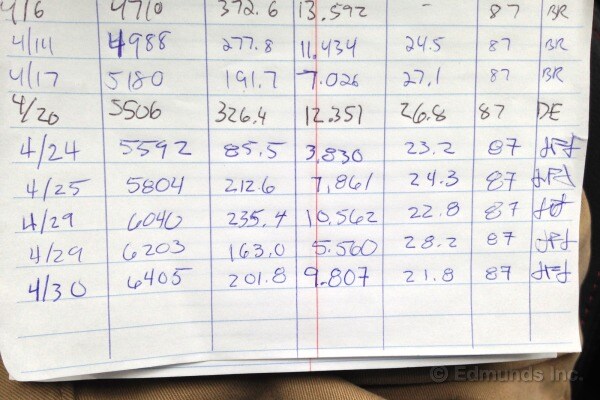 4/6 4710 372.6 13.592 - 87 BR
4/14 4988 277.8 11.434 24.5 87 BR
4/17 5180 191.7 7.026 27.1 87 BR
4/20 5506 326.4 12.351 26.8 87 DE
4/24 5592 85.5 3,830 23.2 87
4/25 5804 212.6 7,861 24.3 87
4/29 6040 235.4 10,562 22.8 87
4/29 6203 163.0 5.560 28.2 87
4/30 6405 201.8 9.807 21.8 87
© Edmunds Inc.